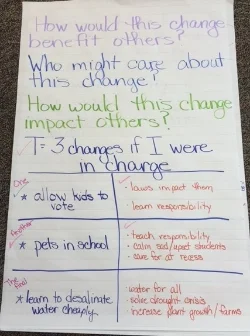 How would this change
benefit others?
Who might care about
this change?
How would this change
impact others?
T= 3 changes if I were
in charge
One
* allow kids to
vote
- laws impact them
- learn responsibility
Another
* pets in school
- teach responsibility
- calm sad/upet students
- care for at recess
The final
* learn to desalinate
water cheaply.
- water for all
- solve drought crisis
- increase plant growth/farms